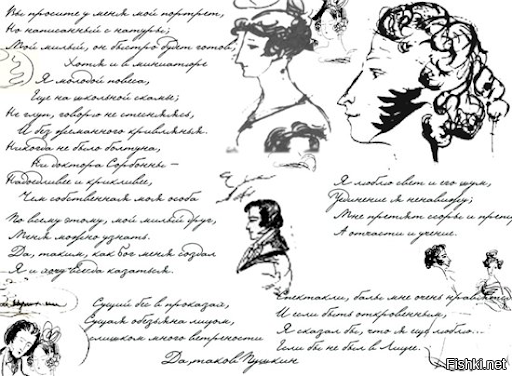 Вы просите у меня мой портрет,
Но написанный с натуры;
Мой милый, он быстро будет готов,
Хотя и в миниатюре
Я молодой повеса,
Еще на школьной скамье;
Не глуп, говорю не стесняясь,
И без жеманного кривлянья.
Никогда не было болтуна,
Ни доктора Сорбонны —
Надоедливее и крикливее,
Чем собственная моя особа
По всему этому, мой милый друг,
Меня можно узнать.
Да, таким, как Бог меня создал
Я и хочу всегда казаться.
Сущий бес в проказах,
Сущая обезьяна лицом,
слишком много ветрености
Да, таков Пушкин
Я люблю свет и его шум,
Уединение я ненавижу;
Мне претят ссоры и
А отчасти и учение.
Спектакли, балы мне очень нравятся
И если быть откровенным,
Я сказал бы, что я еще люблю...
Если бы не был в Лицее.
Fishki.net